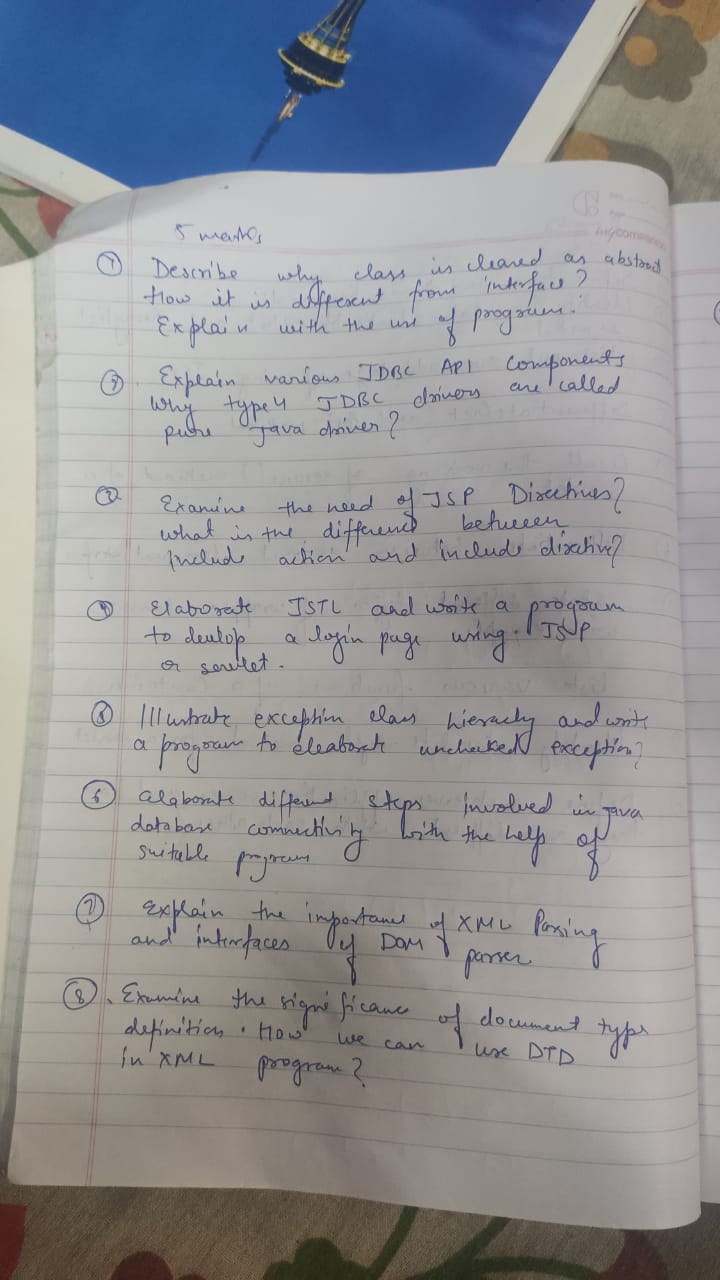 5 marks
① Describe why class is cleared as abstract
How it is different from interface?
Explain with the use of program.
③ Explain various JDBC API components
Why type 4 JDBC drivers are called
pure Java driver?
② Examine the need of JSP Directives?
what is the difference between
include action and include directive?
④ Elaborate JSTL and write a program
to devlop a login page using JSP
or servlet.
⑤ Illustrate exception class hierachy and write
a program to eleaborate unchecked exception?
⑥ elaborate different steps involved in java
database connectivity with the help of
suitable program
⑦ Explain the importance of XML Parsing
and interfaces of DOM parser
⑧. Examine the significance of document type
definition. How we can use DTD
in XML program?